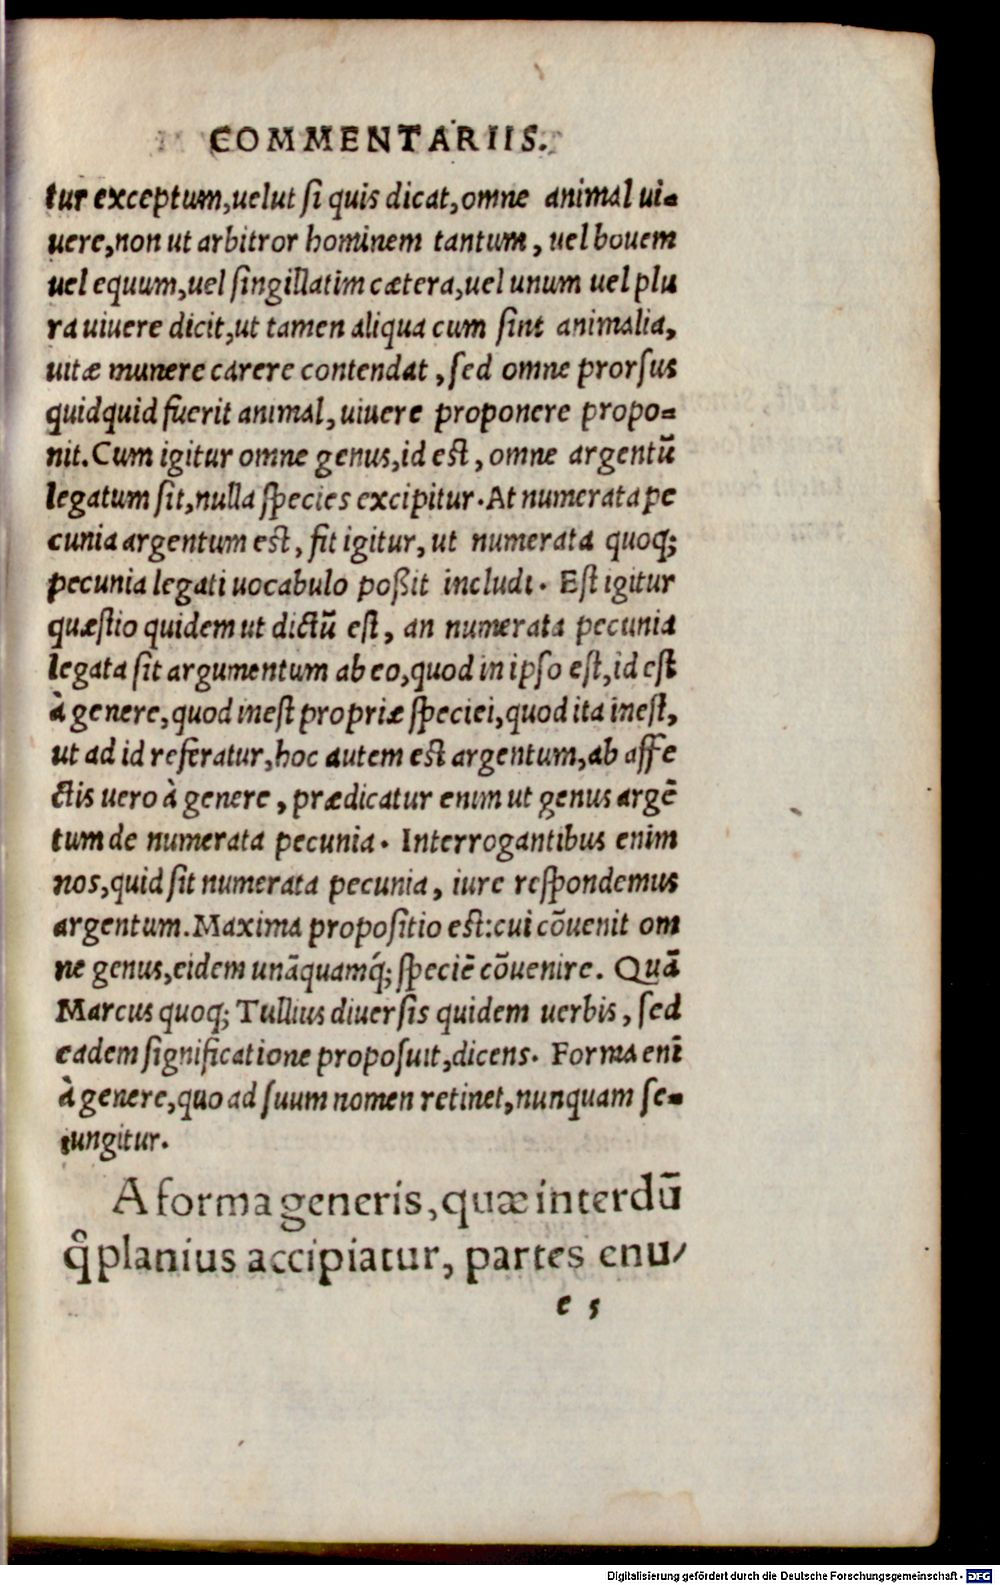 COMMENTARIIS.
tur exceptum,uelut ſi quis dicat,omne animal ui-
uere,non ut arbitror hominem tantum, uel bouem
uel equum,uel ſingillatim cætera,uel unum uel plu
ra uiuere dicit,ut tamen aliqua cum ſint animalia,
uitæ munere carere contendat, ſed omne prorſus
quidquid fuerit animal,uiuere proponere propo-
nit. Cum igitur omne genus,id eſt, omne argentũ
legatum ſit,nulla ſpecies excipitur. At numerata pe
cunia argentum eſt, fit igitur, ut numerata quoq;
pecunia legati uocabulo poßit includi. Eſt igitur
quæſtio quidem ut dictũ eſt, an numerata pecunia
legata ſit argumentum ab eo,quod in ipſo eſt,id eſt
à genere,quod ineſt propriæ ſpeciei,quod ita ineſt,
ut ad id referatur,hoc autem eſt argentum,ab affe
ctis uero à genere, prædicatur enim ut genus argẽ
tum de numerata pecunia. Interrogantibus enim
nos,quid ſit numerata pecunia, iure reſpondemus
argentum. Maxima propoſitio eſt:cui cõuenit om
ne genus,eidem unãquamq́; ſpeciẽ cõuenire. Quã
Marcus quoq; Tullius diuerſis quidem uerbis, ſed
eadem ſignificatione propoſuit,dicens. Forma enĩ
à genere,quo ad ſuum nomen retinet,nunquam ſe-
iungitur.
A forma generis,quæ interdũ
q̊ planius accipiatur, partes enu/
e 5
Digitalisierung gefördert durch die Deutsche Forschungsgemeinschaft - DFG